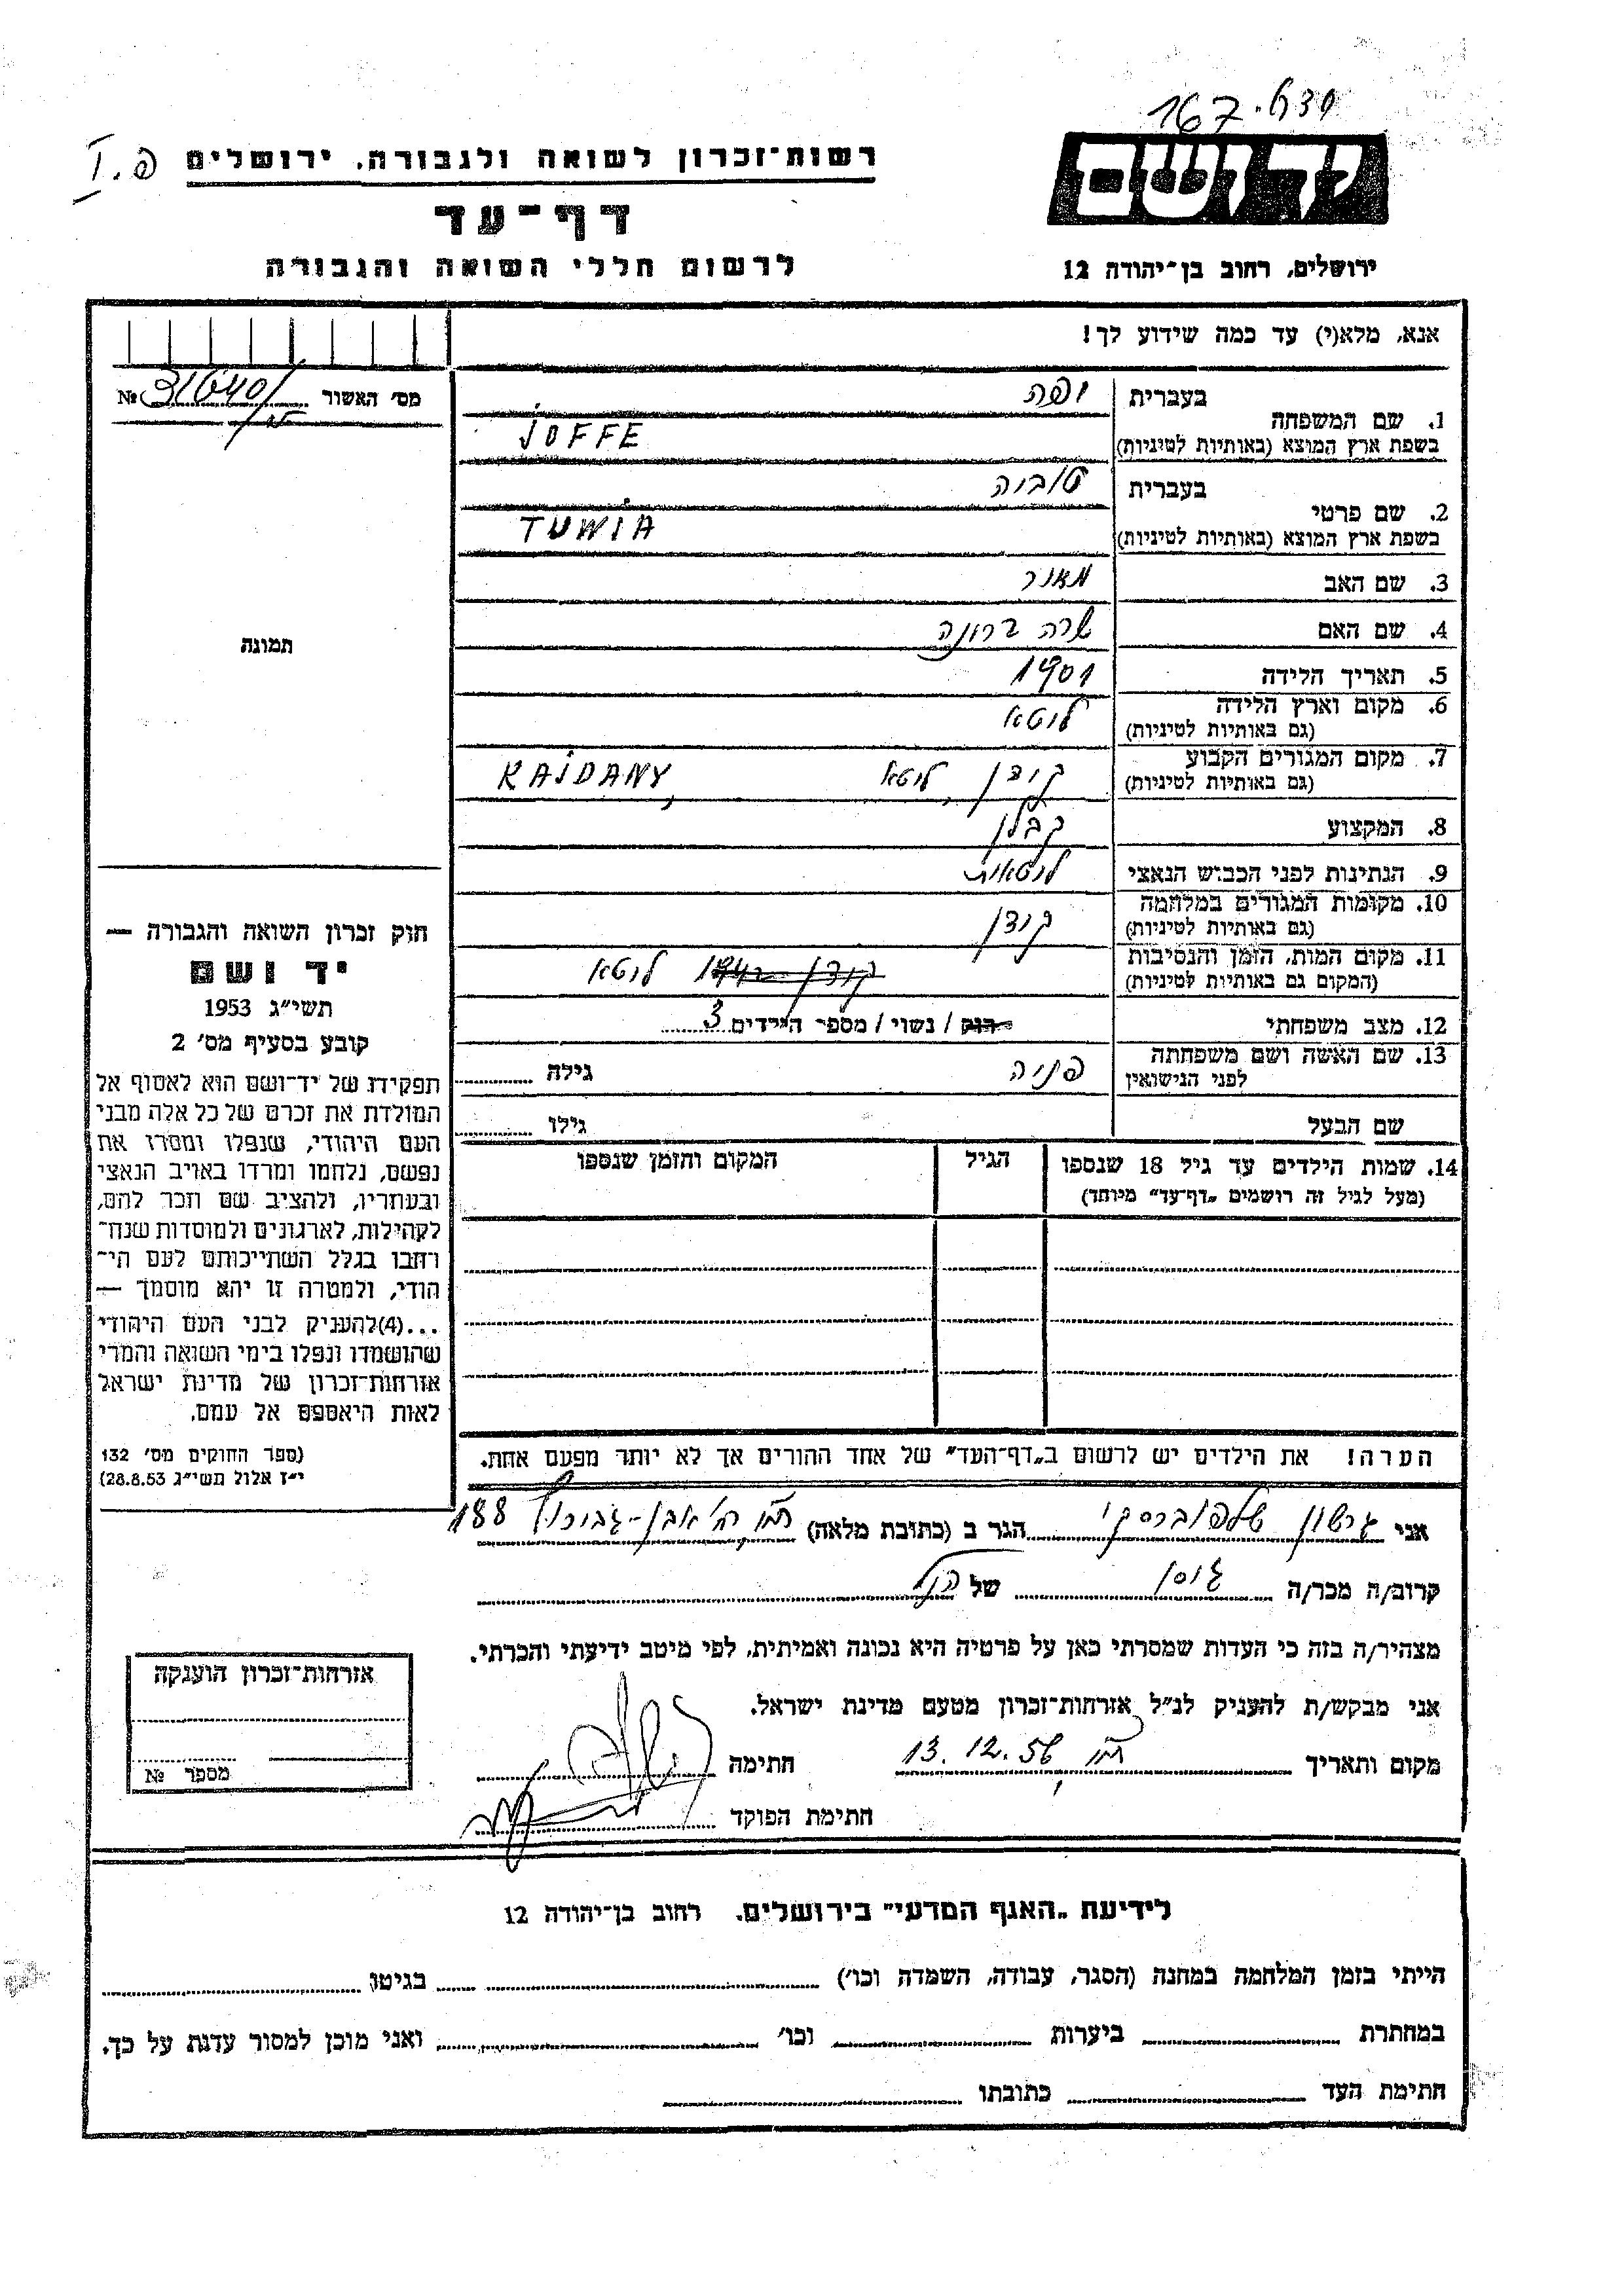 167.639
יד ושם
רשות־זכרון לשואה ולגבורה. ירושלים
דף־עד
ירושלים, רחוב בן־יהודה 12
לרשום חללי השואה והגבורה
אנא, מלא(י) עד כמה שידוע לך!
מס׳ האשור № 31640/
1. שם המשפחה
בעברית יופה
בשפת ארץ המוצא (באותיות לטיניות) JOFFE
2. שם פרטי
בעברית טוביה
בשפת ארץ המוצא (באותיות לטיניות) TUWIA
3. שם האב מאיר
4. שם האם שרה ברונה
5. תאריך הלידה 1901
6. מקום וארץ הלידה
(גם באותיות לטיניות) ליטא
7. מקום המגורים הקבוע
(גם באותיות לטיניות) קידן, ליטא KAJDANY,
8. המקצוע קבלן
9. הנתינות לפני הכבוש הנאצי ליטאית
10. מקומות המגורים במלחמה
(גם באותיות לטיניות) קידן
11. מקום המות, הזמן והנסיבות
(המקום גם באותיות לטיניות) קידן ליטא
12. מצב משפחתי רוק / נשוי / מספר הילדים 3
13. שם האשה ושם משפחתה
לפני הנישואין פניה גילה
שם הבעל גילו
14. שמות הילדים עד גיל 18 שנספו הגיל המקום והזמן שנספו
(מעל לגיל זה רושמים „דף־עד״ מיוחד)
הערה! את הילדים יש לרשום ב„דף־העד״ של אחד ההורים אך לא יותר מפעם אחת.
תמונה
חוק זכרון השואה והגבורה —
יד ושם
תשי״ג 1953
קובע בסעיף מס׳ 2
תפקידו של יד־ושם הוא לאסוף אל
המולדת את זכרם של כל אלה מבני
העם היהודי, שנפלו ומסרו את
נפשם, נלחמו ומרדו באויב הנאצי
ובעוזריו, ולהציב שם וזכר להם,
לקהילות, לארגונים ולמוסדות שנח־
רבו בגלל השתייכותם לעם הי־
הודי, ולמטרה זו יהא מוסמך —
...(4)להעניק לבני העם היהודי
שהושמדו ונפלו בימי השואה והמרי
אזרחות־זכרון של מדינת ישראל
לאות היאספם אל עמם.
(ספר החוקים מס׳ 132
י״ז אלול תשי״ג 28.8.53)
אני גרשון שלפוברסקי הגר ב (כתובת מלאה) ת״א, רח׳ אבן-גבירול 188
קרוב/ה מכר/ה גיסו של הנ״ל
מצהיר/ה בזה כי העדות שמסרתי כאן על פרטיה היא נכונה ואמיתית, לפי מיטב ידיעתי והכרתי.
אני מבקש/ת להעניק לנ״ל אזרחות־זכרון מטעם מדינת ישראל.
מקום ותאריך ת״א, 13.12.56 חתימה
חתימת הפוקד
אזרחות־זכרון הוענקה
מספר №
לידיעת „האגף המדעי״ בירושלים. רחוב בן־יהודה 12
הייתי בזמן המלחמה במחנה (הסגר, עבודה, השמדה וכו׳) בגיטו
במחתרת ביערות וכו׳ ואני מוכן למסור עדות על כך.
חתימת העד כתובתו